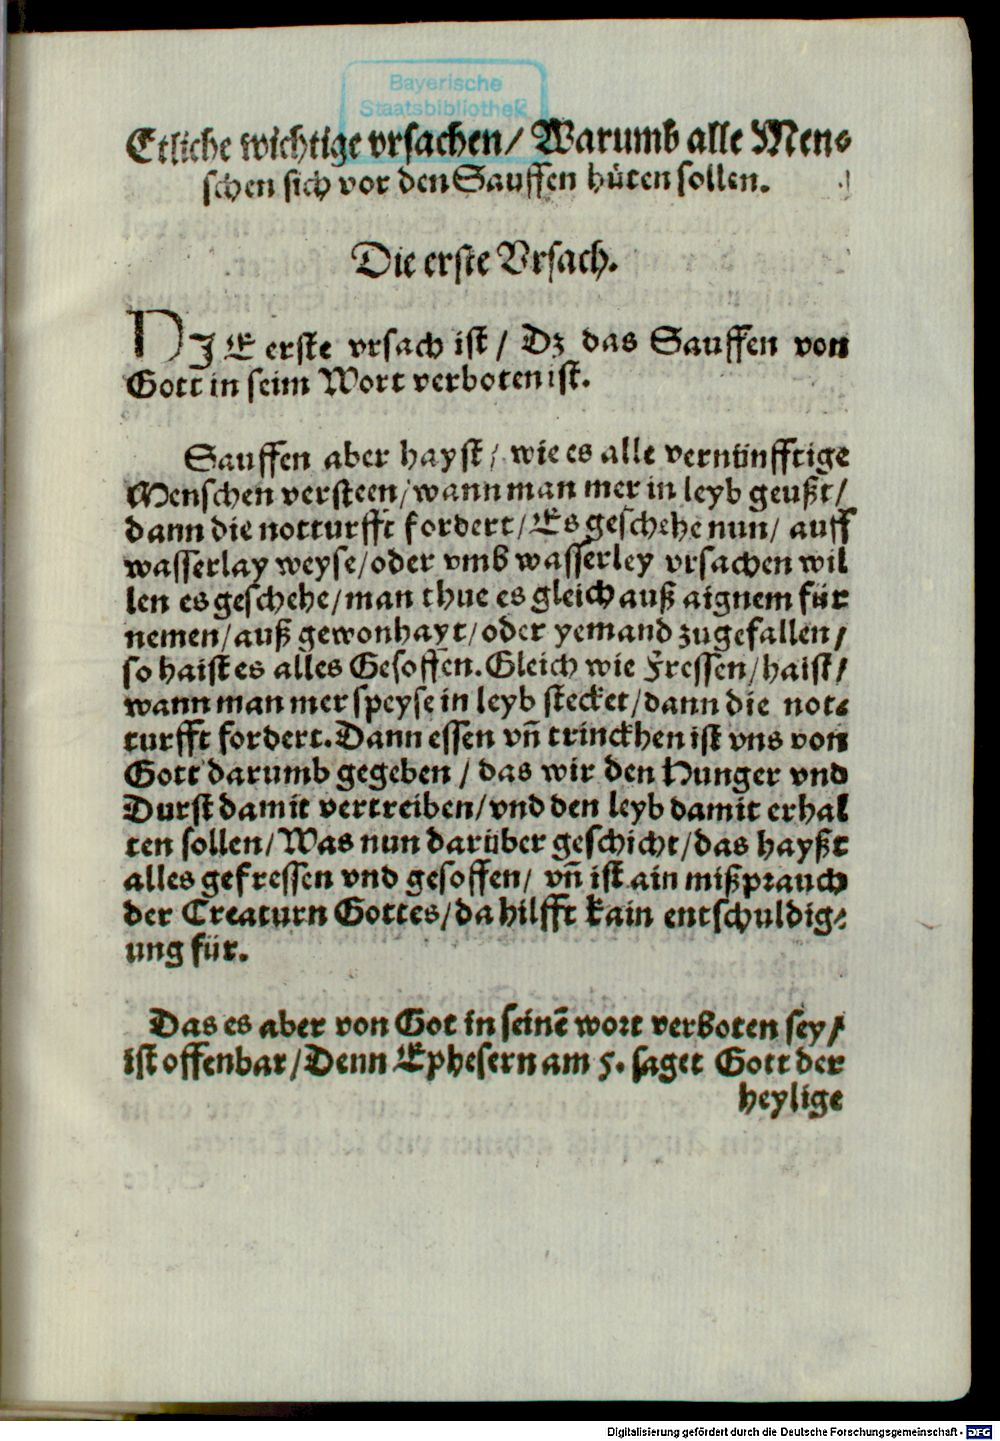 Bayerische
Staatsbibliothek
Etliche wichtige vrsachen/ Warumb alle Men⸗
schen sich vor den Sauffen hüten sollen.
Die erste Vrsach.
DIE erste vrsach ist / Dz das Sauffen von
Gott in seim Wort verboten ist.
Sauffen aber hayst / wie es alle vernünfftige
Menschen versteen/ wann man mer in leyb geußt/
dann die notturfft fordert/ Es geschehe nun/ auff
wasserlay weyse/ oder vmb wasserley vrsachen wil
len es geschehe/ man thue es gleich auß aignem für
nemen/ auß gewonhayt/ oder yemand zugefallen/
so haist es alles Gesoffen. Gleich wie Fressen/ haist/
wann man mer speyse in leyb stecket/ dann die not⸗
turfft fordert. Dann essen vñ trinckhen ist vns von
Gott darumb gegeben / das wir den Hunger vnd
Durst damit vertreiben/ vnd den leyb damit erhal
ten sollen/ Was nun darüber geschicht/ das hayßt
alles gefressen vnd gesoffen/ vñ ist ain mißprauch
der Creaturn Gottes/ da hilfft kain entschuldig⸗
ung für.
Das es aber von Got in seinē wort verboten sey/
ist offenbar/ Denn Ephesern am 5. saget Gott der
heylige
Digitalisierung gefördert durch die Deutsche Forschungsgemeinschaft - DFG